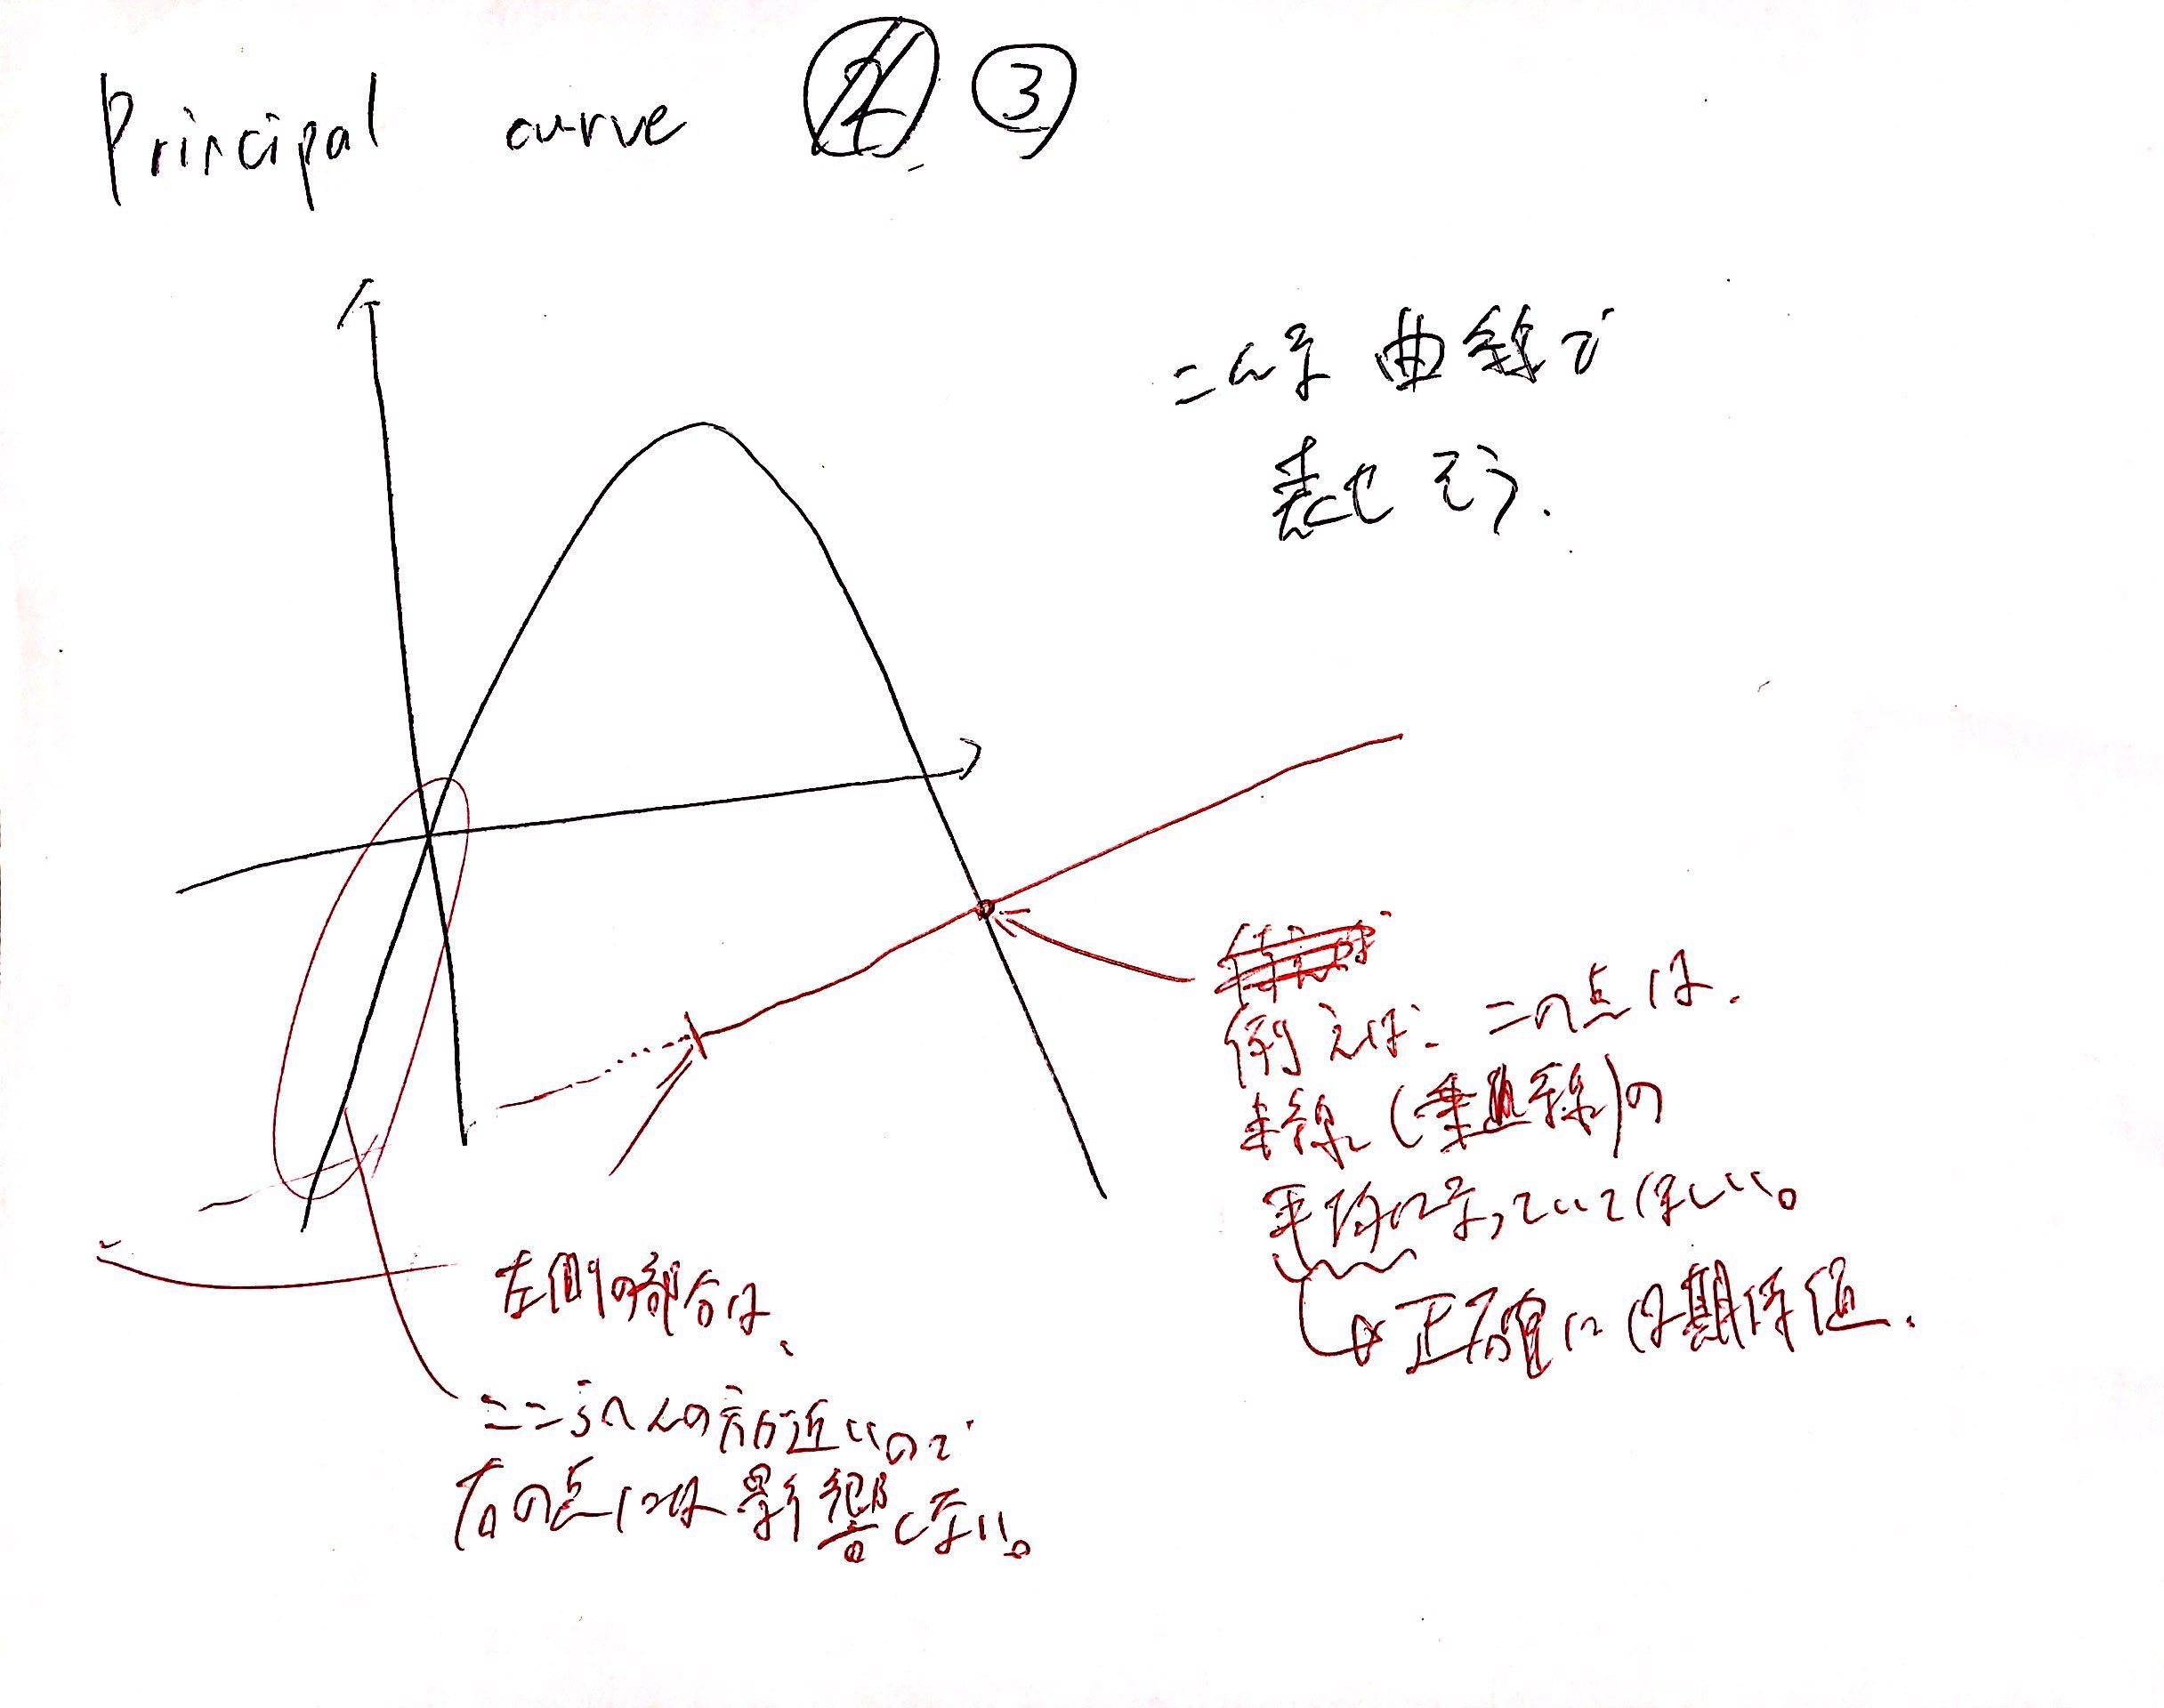 Principal curve ③
こんな 曲線で
表せそう.
例えば、この点は.
半線 (垂直線)の
平均になっていてほしい。
正確には期待値.
左側の部分は、
ここらへんの方が近いので
右の点には影響しない。